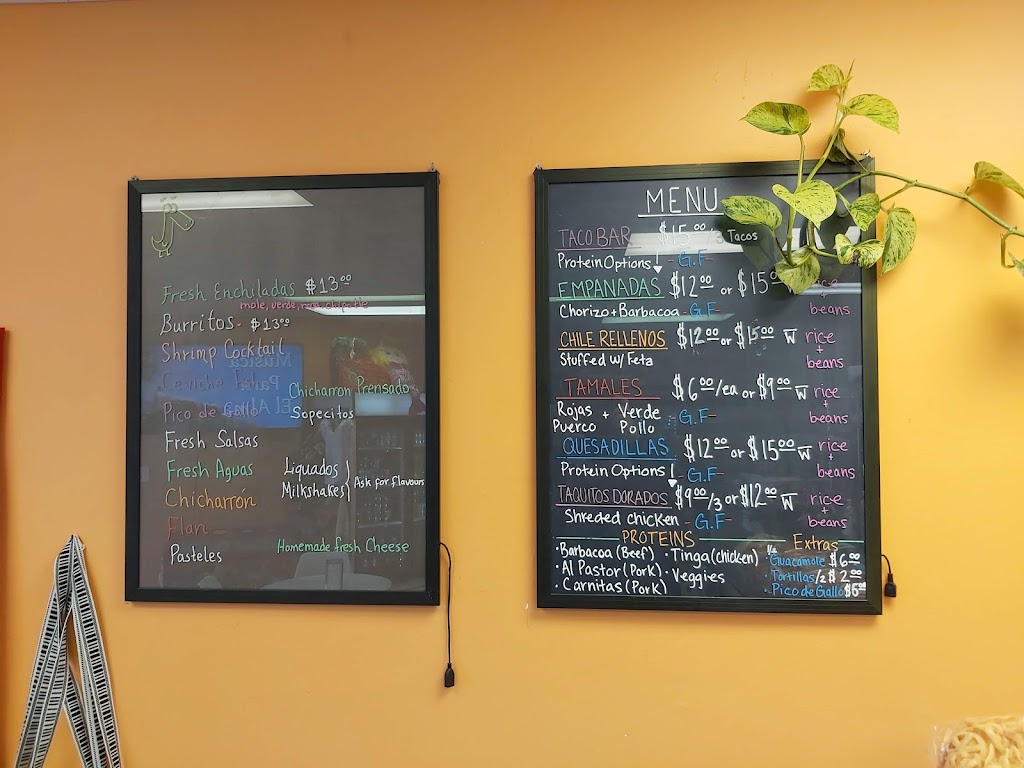 Fresh Enchiladas $13.00
mole, verde, roja, chipotle
Burritos - $13.00
Shrimp Cocktail
Ceviche
Chicharron Prensado
Pico de Gallo
Sopecitos
Fresh Salsas
Fresh Aguas
Liquados
Milkshakes
Ask for flavours
Chicharrón
Flan
Pasteles
Homemade fresh Cheese
MENU
TACO BAR $15.00/3 Tacos
Protein Options - G.F-
EMPANADAS $12.00 or $15.00 rice
Chorizo + Barbacoa - G.F- beans
CHILE RELLENOS $12.00 or $15.00 w rice
+
Stuffed w/ Feta beans
TAMALES $6.00/ea or $9.00 w rice
+
Rojas Puerco + Verde Pollo - G.F- beans
QUESADILLAS $12.00 or $15.00 w rice
+
Protein Options - G.F- beans
TAQUITOS DORADOS $9.00/3 or $12.00 w rice
+
Shreded chicken - G.F- beans
PROTEINS
· Barbacoa (Beef) · Tinga (chicken)
· Al Pastor (Pork) · Veggies
· Carnitas (Pork)
Extras
· Guacamole $6.00
· Tortillas/2 $2.00
· Pico de Gallo $6.00